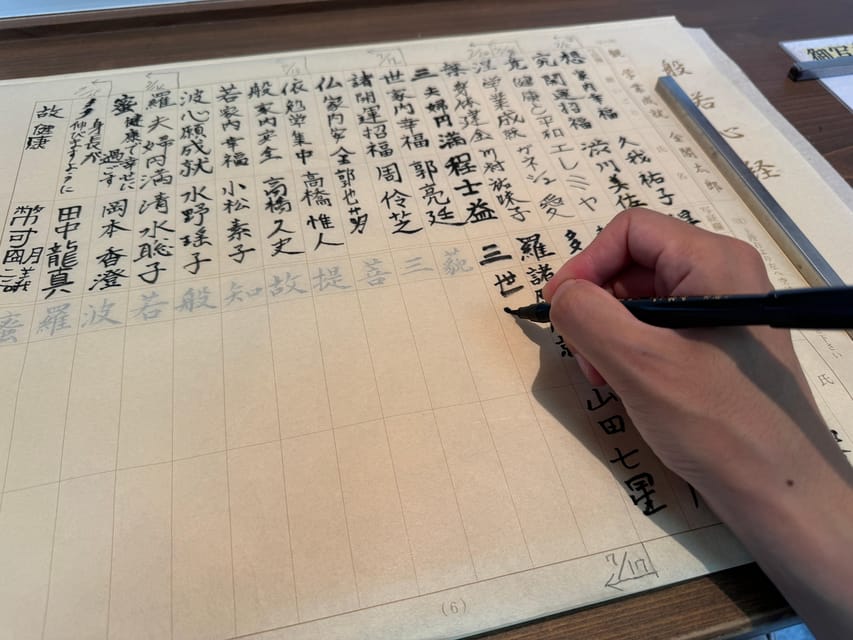 般若心経
観 学業成就 金閣太郎
想 家内幸福 久我祐子
究 開運招福 渋川美佐
竟 健康と平和 エレミヤ
涅 学業成就 ケネジェ 愛
槃 身体健全 川村祐味子
三 夫婦円満 程士益
世 家内幸福 郭亮廷
諸 開運招福 周伶芝
仏 家内安全 郭也
依 勉学集中 高橋惟人
般 家内安全 高橋久史
若 家内幸福 小松素子
波 心願成就 水野瑶子
羅 夫婦円満 清水聡子
蜜 健康で幸せに過ごす 岡本香澄
多 身長が伸びますように 田中龍真
故 健康
氏
多
山田七星
羅 諸
三 世
藐
三
菩
提
故
知
般
若
波
羅
蜜
7/17
(6)